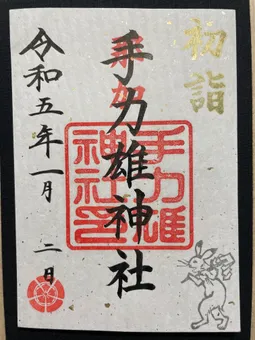 初詣
手力雄神社
手力雄
神社印
令和五年一月二日